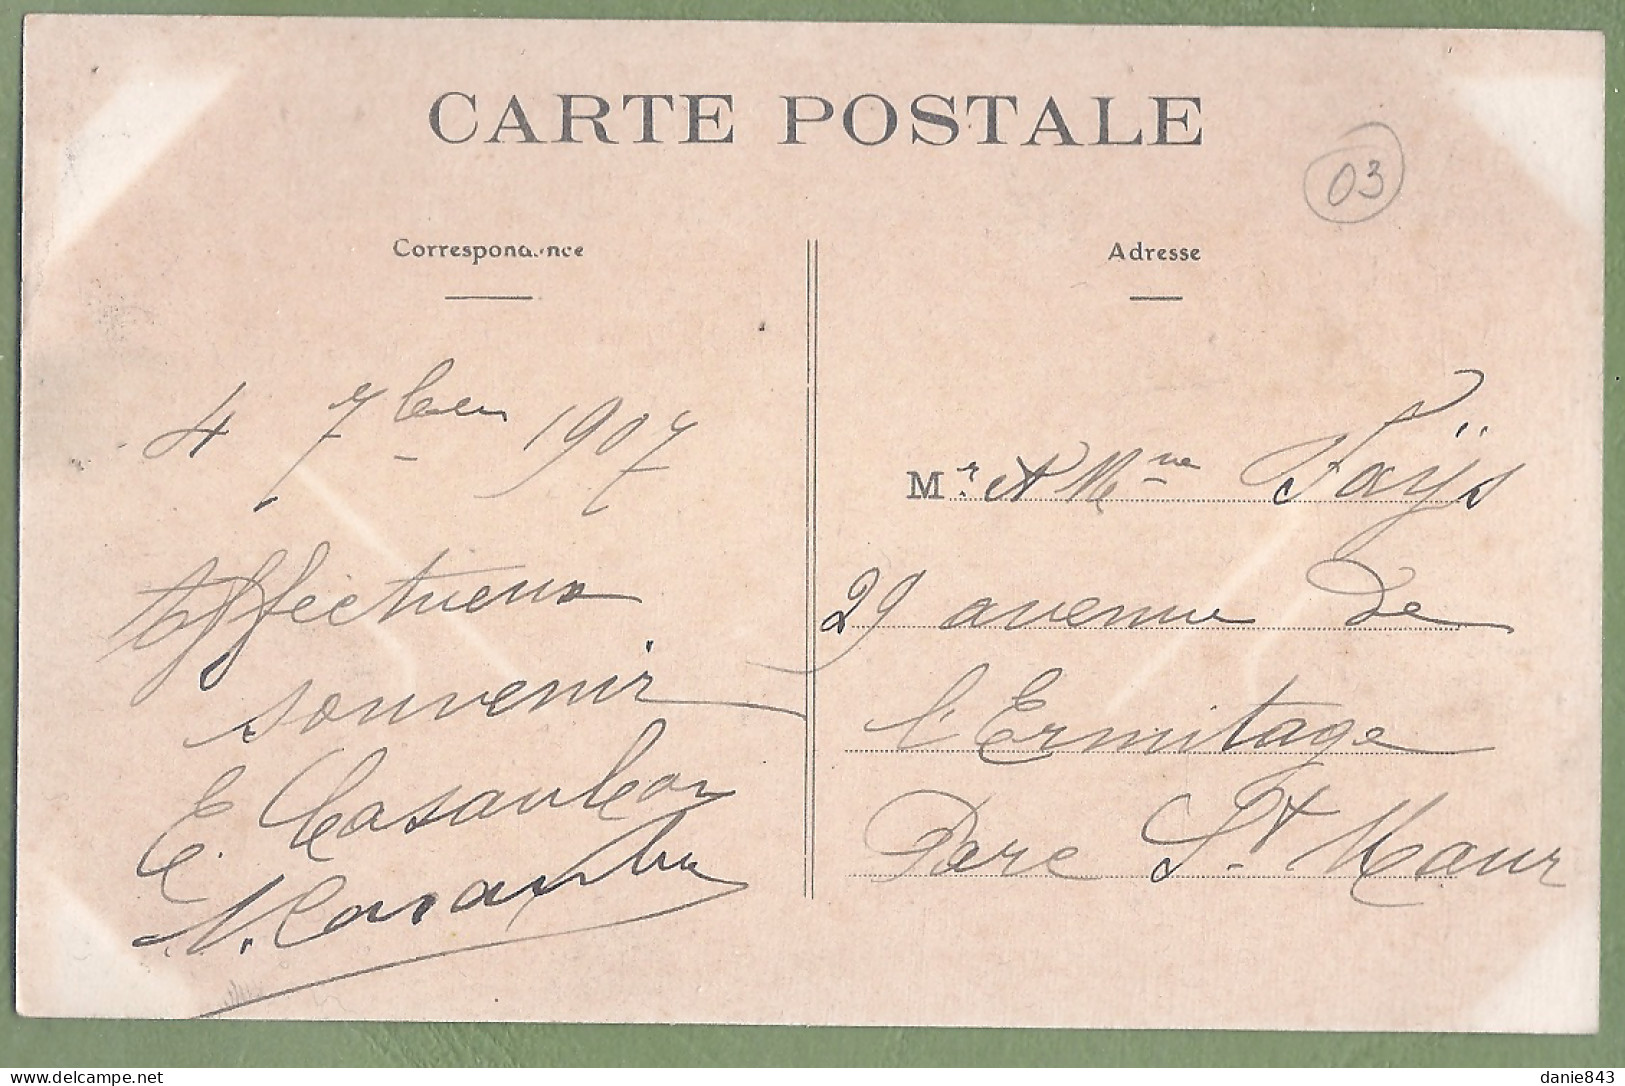 CARTE POSTALE
03
Correspondance
Adresse
4 7bre 1907
Affectueux
souvenir
E.
Mr et Mme Faÿs
29 avenue de
l'Ermitage
Parc St. Maur
danie843